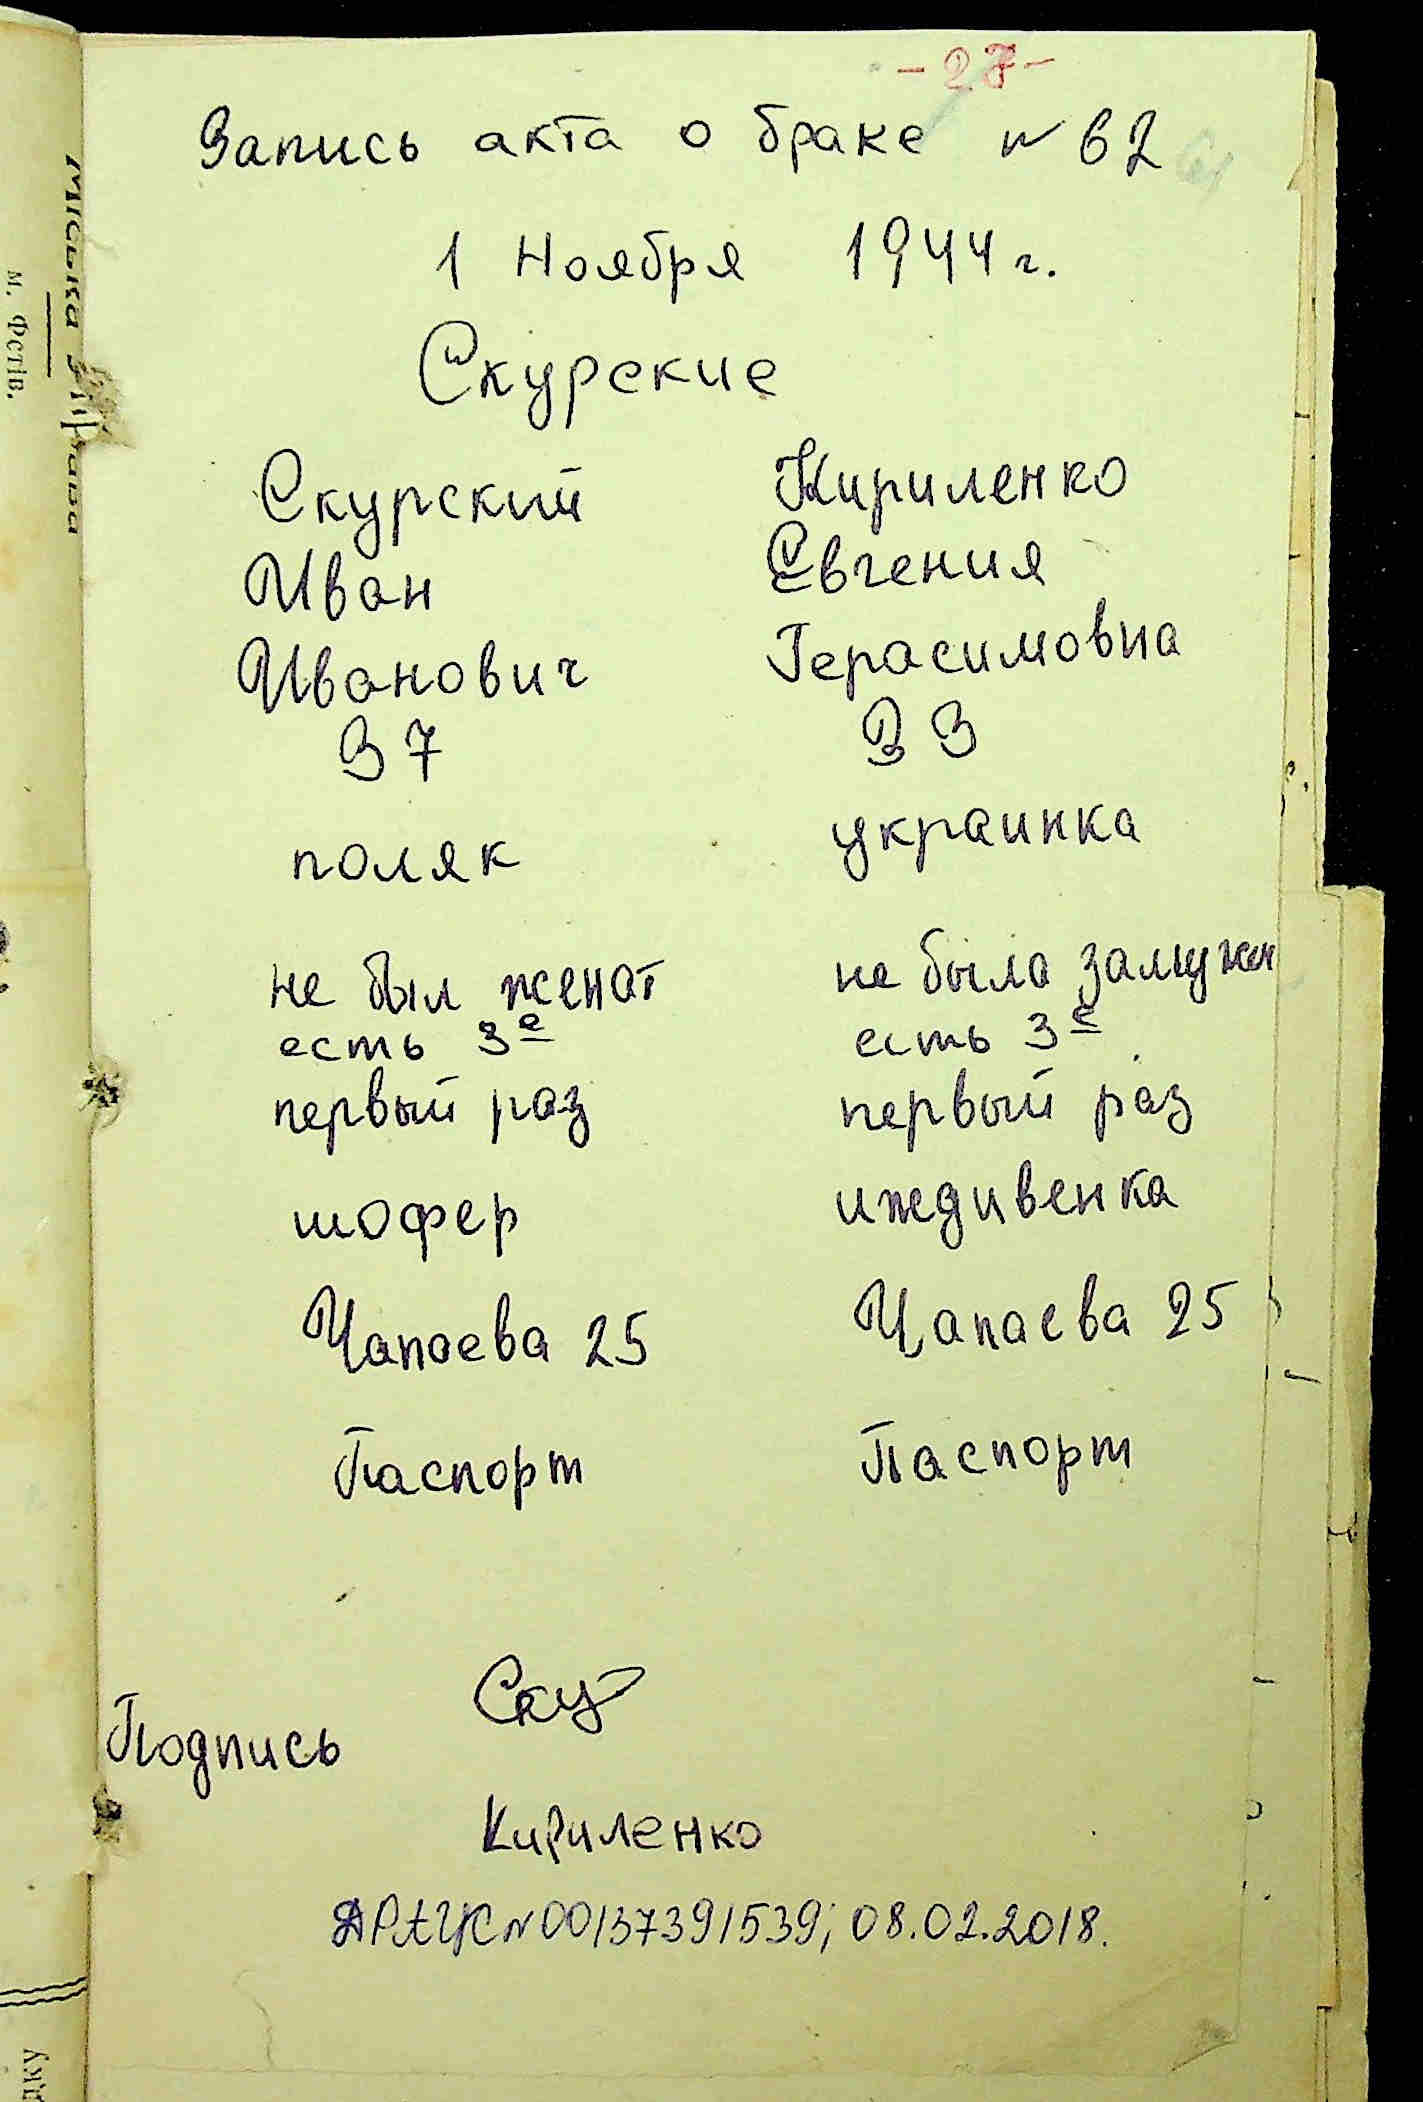 -27-
Запись акта о браке N 62
1 Ноября 1944 г.
Скурские
Скурский Кириленко
Иван Евгения
Иванович Герасимовна
37 33
поляк украинка
не был женат не была замужем
есть 3е есть 3е
первый раз первый раз
шофер иждивенка
Чапаева 25 Чапаева 25
Паспорт Паспорт
Ску
Подпись
Кириленко
ДРАЦС N 00137391539; 08.02.2018.
Міська Управа
м. Фстів.